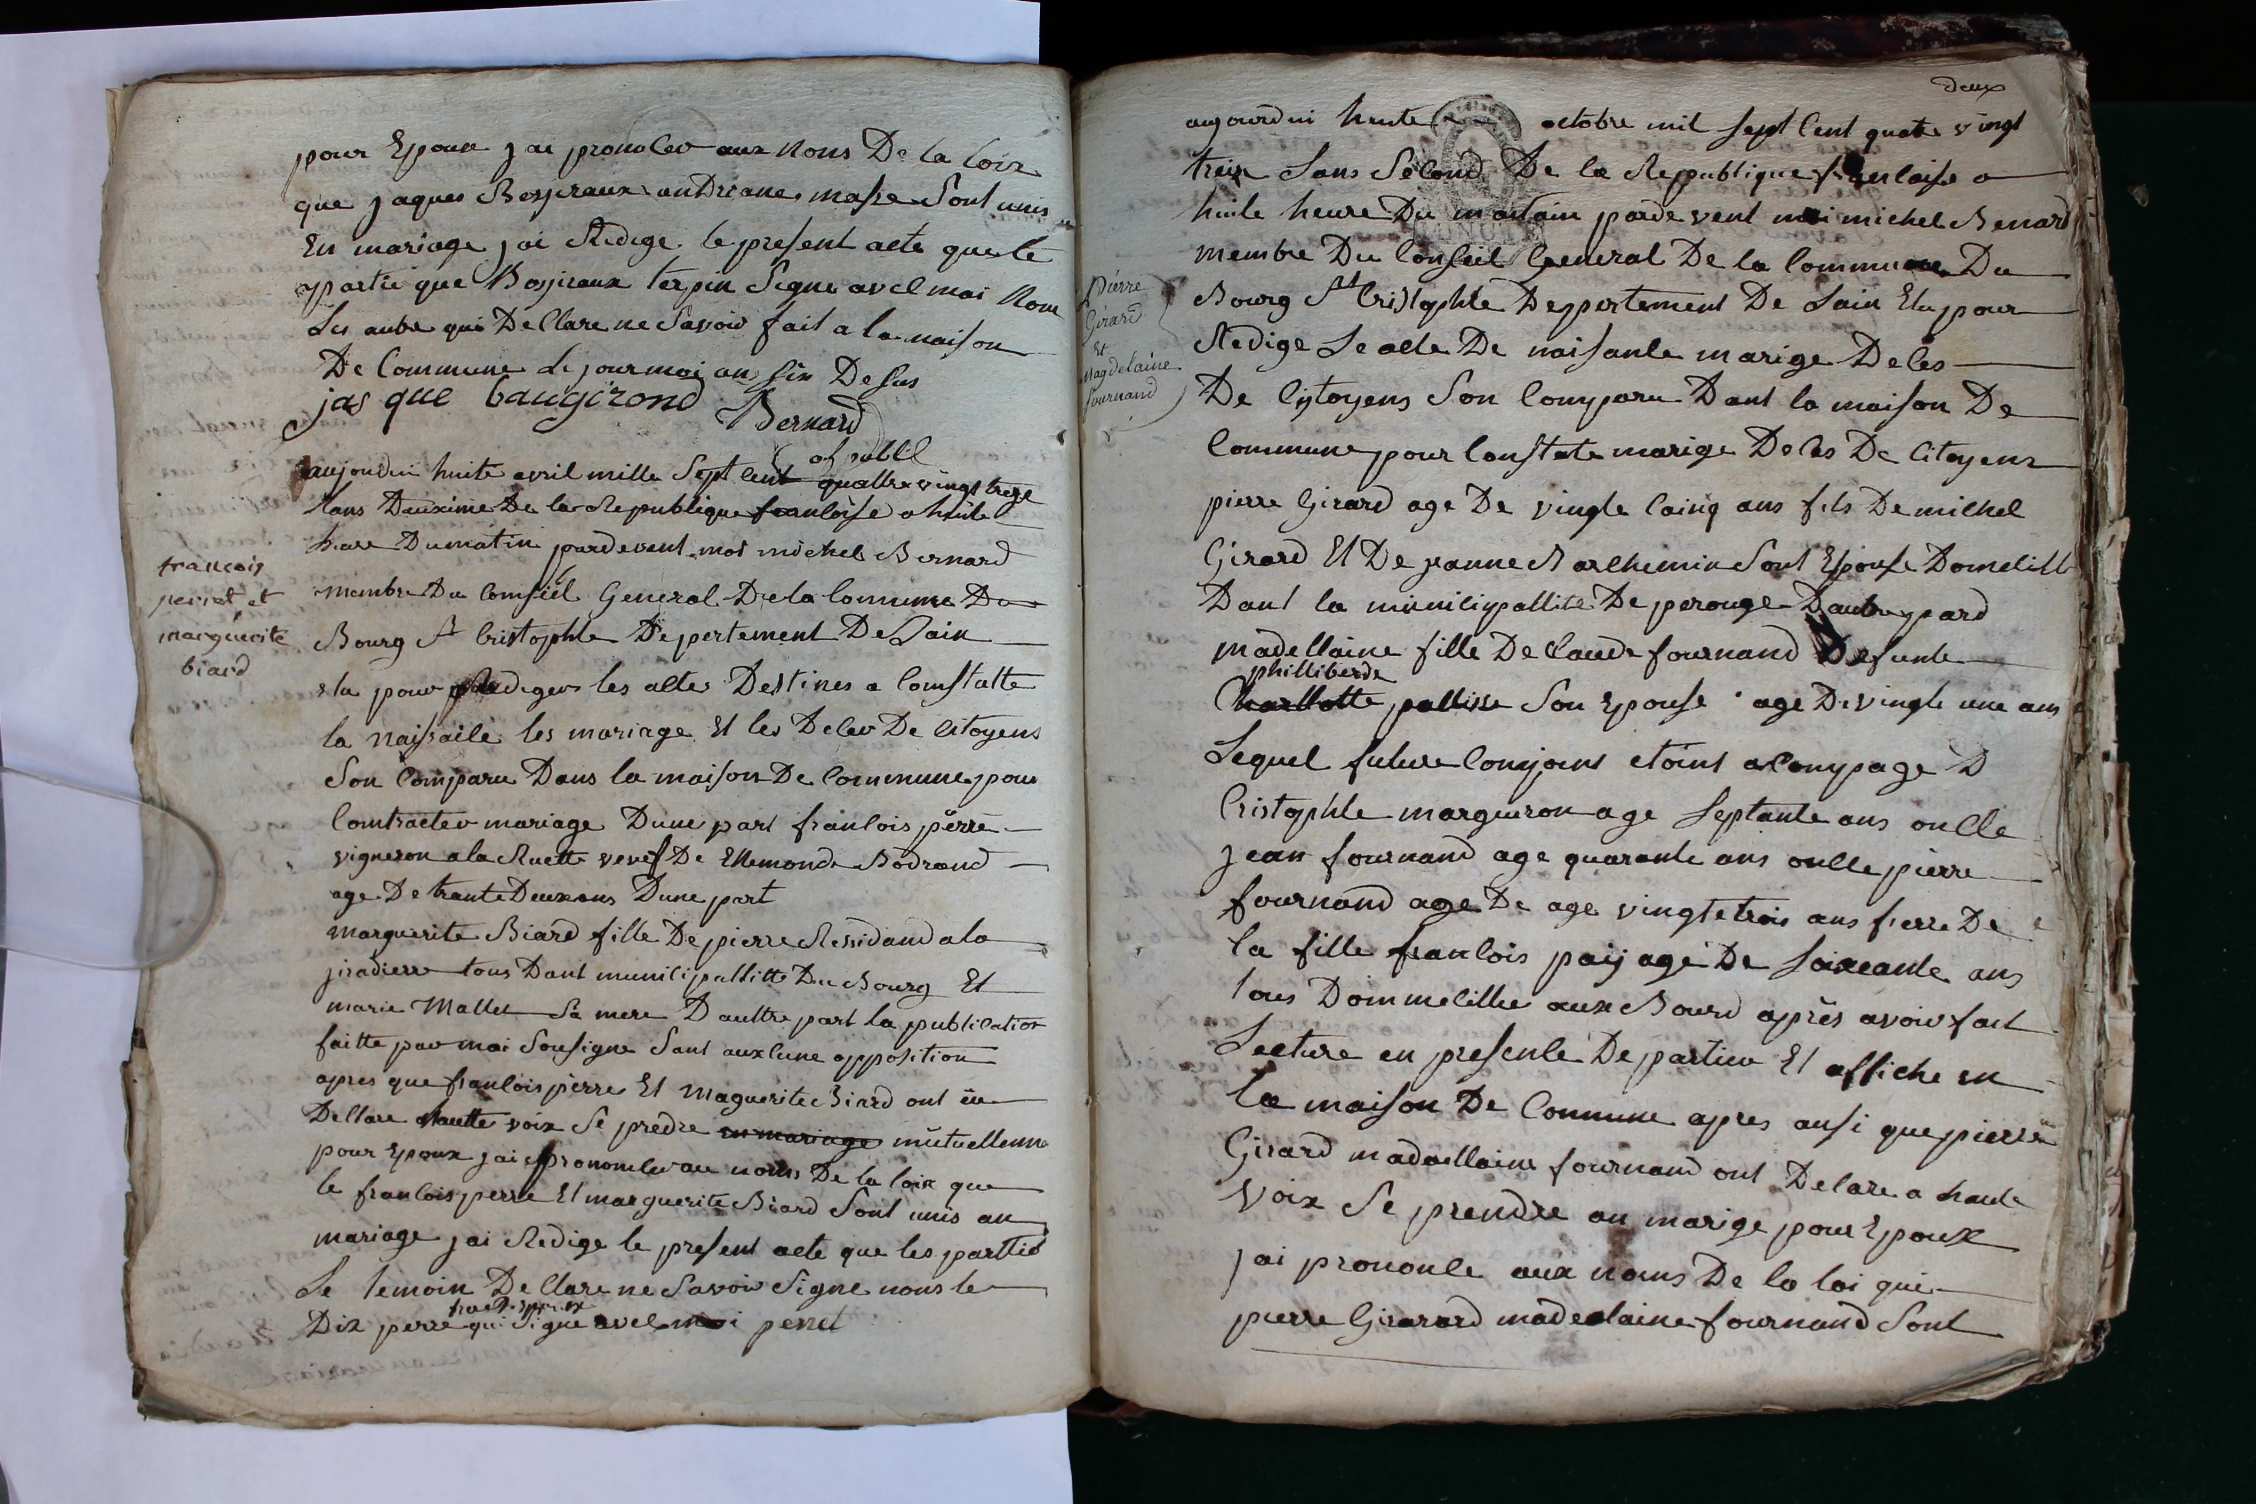 pour Epoux jai pronolev aux Nons De la loix
que jaques Bosjiraux andriane masse Sont unis
En mariage jai Redige le present alte que le
partie que Bosjiraux terpin Signe avel moi Nom
Les autre qui De Clare ne Savoir fait a la maison
De Commune le jour moi an six De sus
jas que baugirond
Bernard
of publl
aujourdui huite avril mille Sept Cent quattre vingt treze
lans Deuxime De la Republique franloise a huite
heure Du matin pardevent moi michel Bernard
membre Du Comseil General De la Commune Du
Bourg St Cristophle Depertement De Lain
elu pour Rediger les altes Destines a Comstatte
la Naissaile les mariage Et les Deler De Citoyens
Son Comparu Dans la maison De Commune pour
Comtracter mariage Dune part franlois perre
vigneron a la Ruette veuef De Ellemonde Bodrand
age De trante Deux ans Dune part
marguerite Biard fille De pierre Residand a la
jiradierre tous Dant munilipallitte Du Bourg Et
marie Mallet Sa mere D aultre part la publication
faitte par moi Sousigne Sant auxlune opposition
apres que franlois pierre Et Maguerite Biard ont ëu
De Clare a hautte voix Se predre en mariage mutuelleme
pour Epoux jai pronomlev au noms De la loix que
le franlois perre Et marguerite Biard Sont unis an
mariage jai Redige le present alte que les parttie
Le temoin De Clare ne Savoir Signe nous le
Dix perre qui Signe avel moi peret
francois
perret et
marguerite
biard
deux
aujourdui huite octobre mil sept Cent quatre vingt
treize Lans Second De la Republique franlaise a
huite heure Du mattain parde vent moi michel Benard
membre Du Conseil General De la Commune Du
Bourg St Cristophle Deppertement De Lain Elu pour
Redige Le alte De naisante marige De les
De Citoyens Son Comparu Dant la maison De
Commune pour Constate marige De les De Citoyens
pierre Girard age De vingte Cainq ans fils De milhel
Girard Et De janne Marlhemin Sont Epouse Domelille
Dant la munilipallite De perouge D autre pard
madellaine fille De Claude fournand Defunte
philliberde
Charllotte pallisse Son Epouse age De vingte une ans
Lequel future Conjoint etoint aCompage D
Cristophle margueron age Septante ans onlle
jean fournand age quarante ans onlle pierre
fournand age De age vingtetrois ans frerre De
la fille franlois paij age De Soixante ans
tous Dommelillie aux Bourd après avoir fait
Lecture en presenle De partieu Et affiche en
La maison De Commune apres ansi que pierre
Girard madaellaine fournand ont Delare a haute
voix Se prendre an marige pour Epoux
jai prononle aux noms De la loi que
pierre Girarard madeelaine fournand Sont
Pierre
Girard
et
Magdelaine
fournand